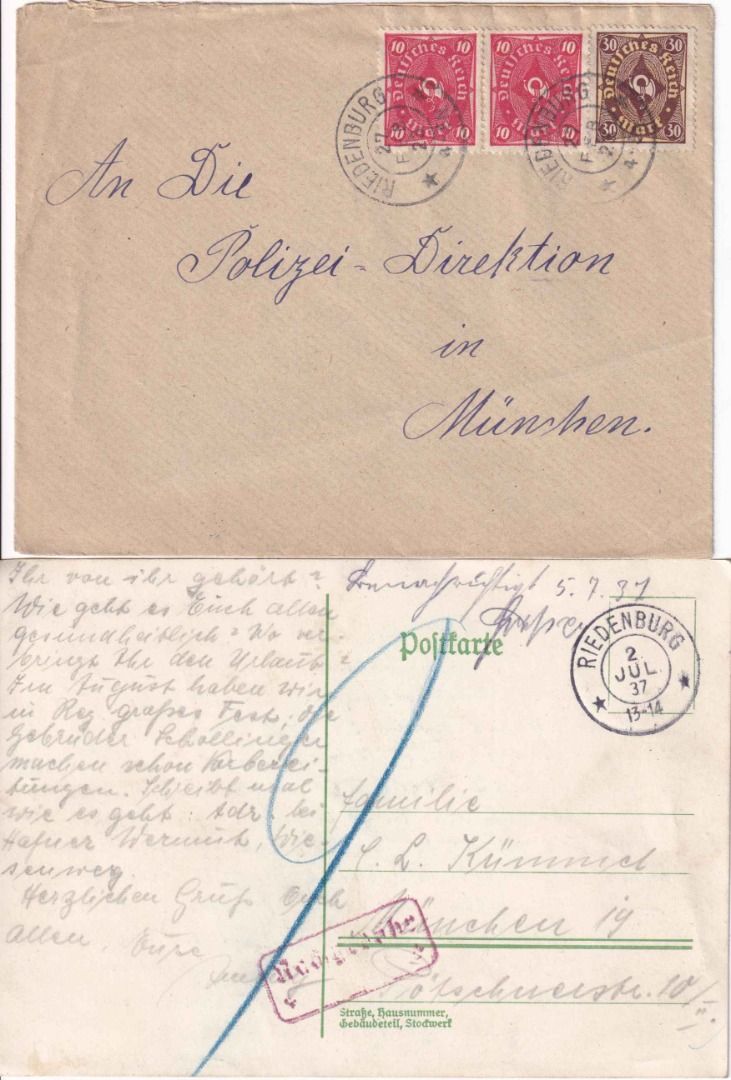 10 10
Deutsches Reich
Mark
10 10
10 10
Deutsches Reich
Mark
10 10
30 30
Deutsches Reich
Mark
30 30
RIEDENBURG
27
FEB
RIEDENBURG
27
FEB
An Die
Polizei-Direktion
in
München.
Ihr von ihr gehört?
Wie geht es Euch allen
gesundheitlich? Wo ver-
bringt Ihr den Urlaub?
Im August haben wir
in Rbg großes Fest, die
Gebrüder Schollinger
machen schon Vorberei-
tungen. Schreibt mal
wie es geht. Adr. bei
Hafner Wermut, Wie-
senweg
Herzlichen Gruß Euch
allen. Eure
Benachrichtigt 5.7.37
Postkarte
RIEDENBURG
2.
JUL.
37
13-14
Familie
C. L. Kümmel
München 19
10/II.
Nachgebühr
Straße, Hausnummer,
Gebäudeteil, Stockwerk